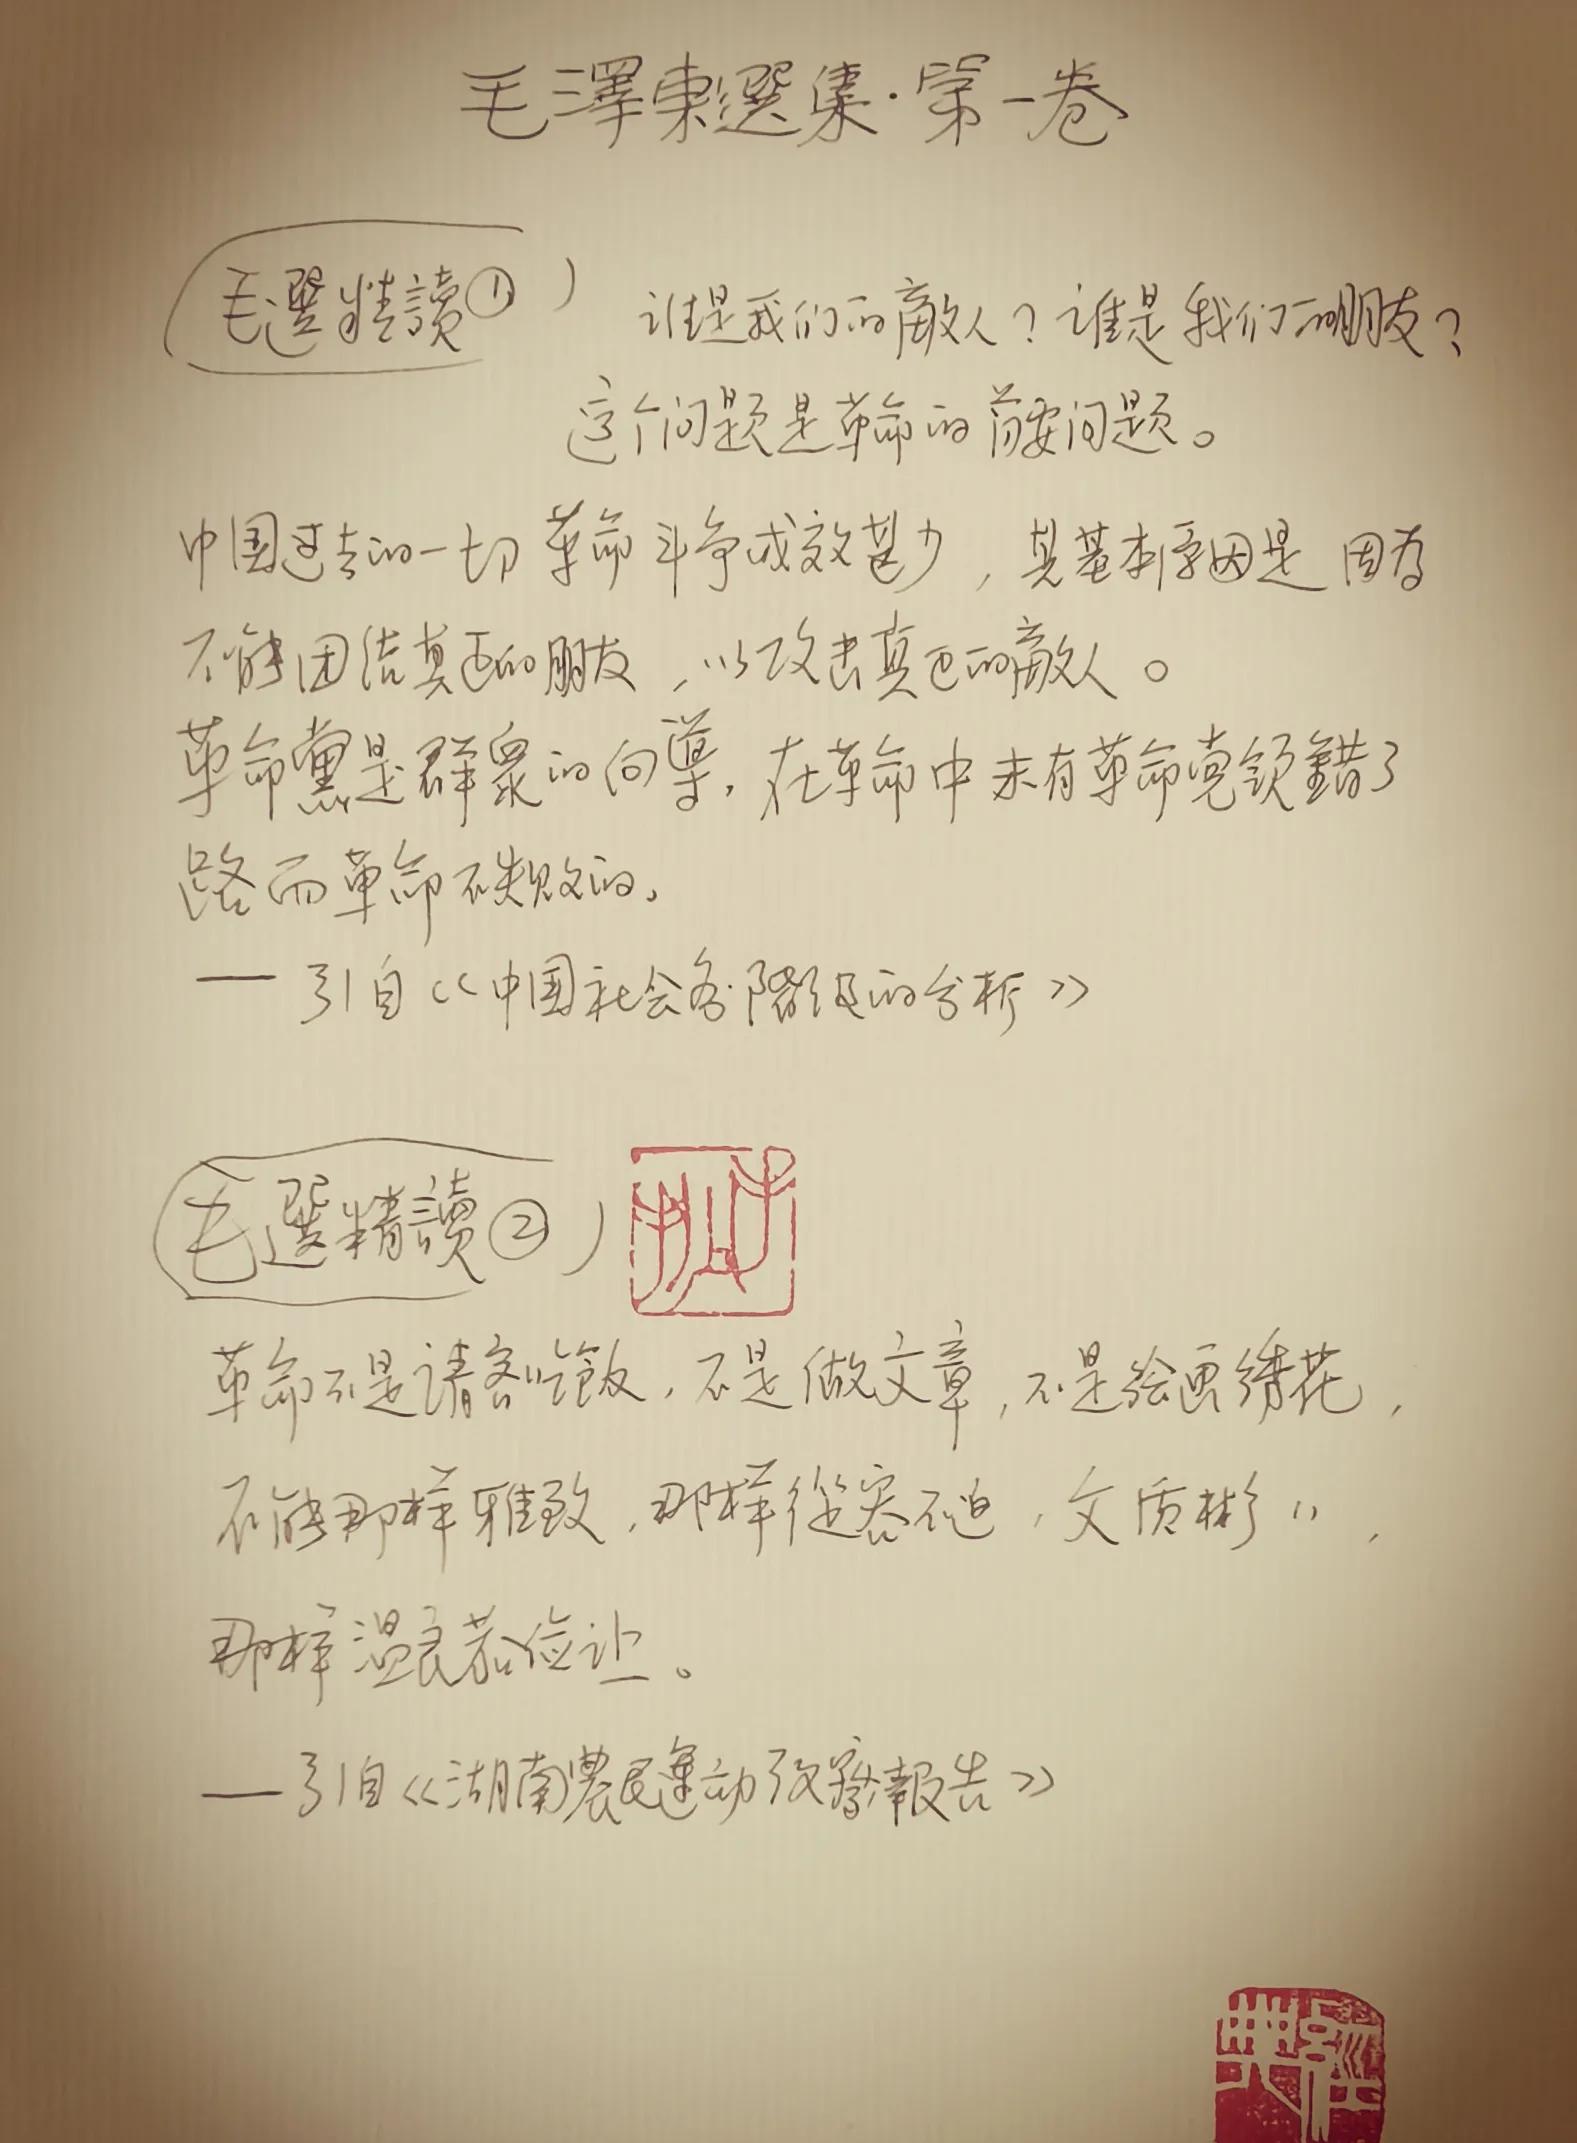 毛澤東選集·第一卷
毛選精讀①
谁是我们的敵人？谁是我们的朋友？
这个问题是革命的首要问题。
中国过去的一切革命斗争成效甚少，其基本原因是因为
不能团结真正的朋友，以攻击真正的敵人。
革命黨是群衆的向導，在革命中未有革命党领錯了
路而革命不失败的。
— 引自《中国社会各階级的分析》
毛選精讀②
革命不是请客吃飯，不是做文章，不是绘画绣花，
不能那样雅致，那样從容不迫，文质彬〃，
那样温良恭俭让。
— 引自《湖南農民運动攷察報告》